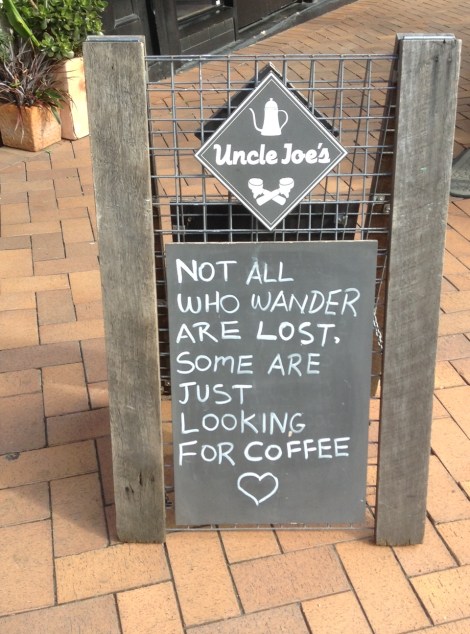 Uncle Joe's
NOT ALL
WHO WANDER
ARE LOST.
SOME ARE
JUST
LOOKING
FOR COFFEE